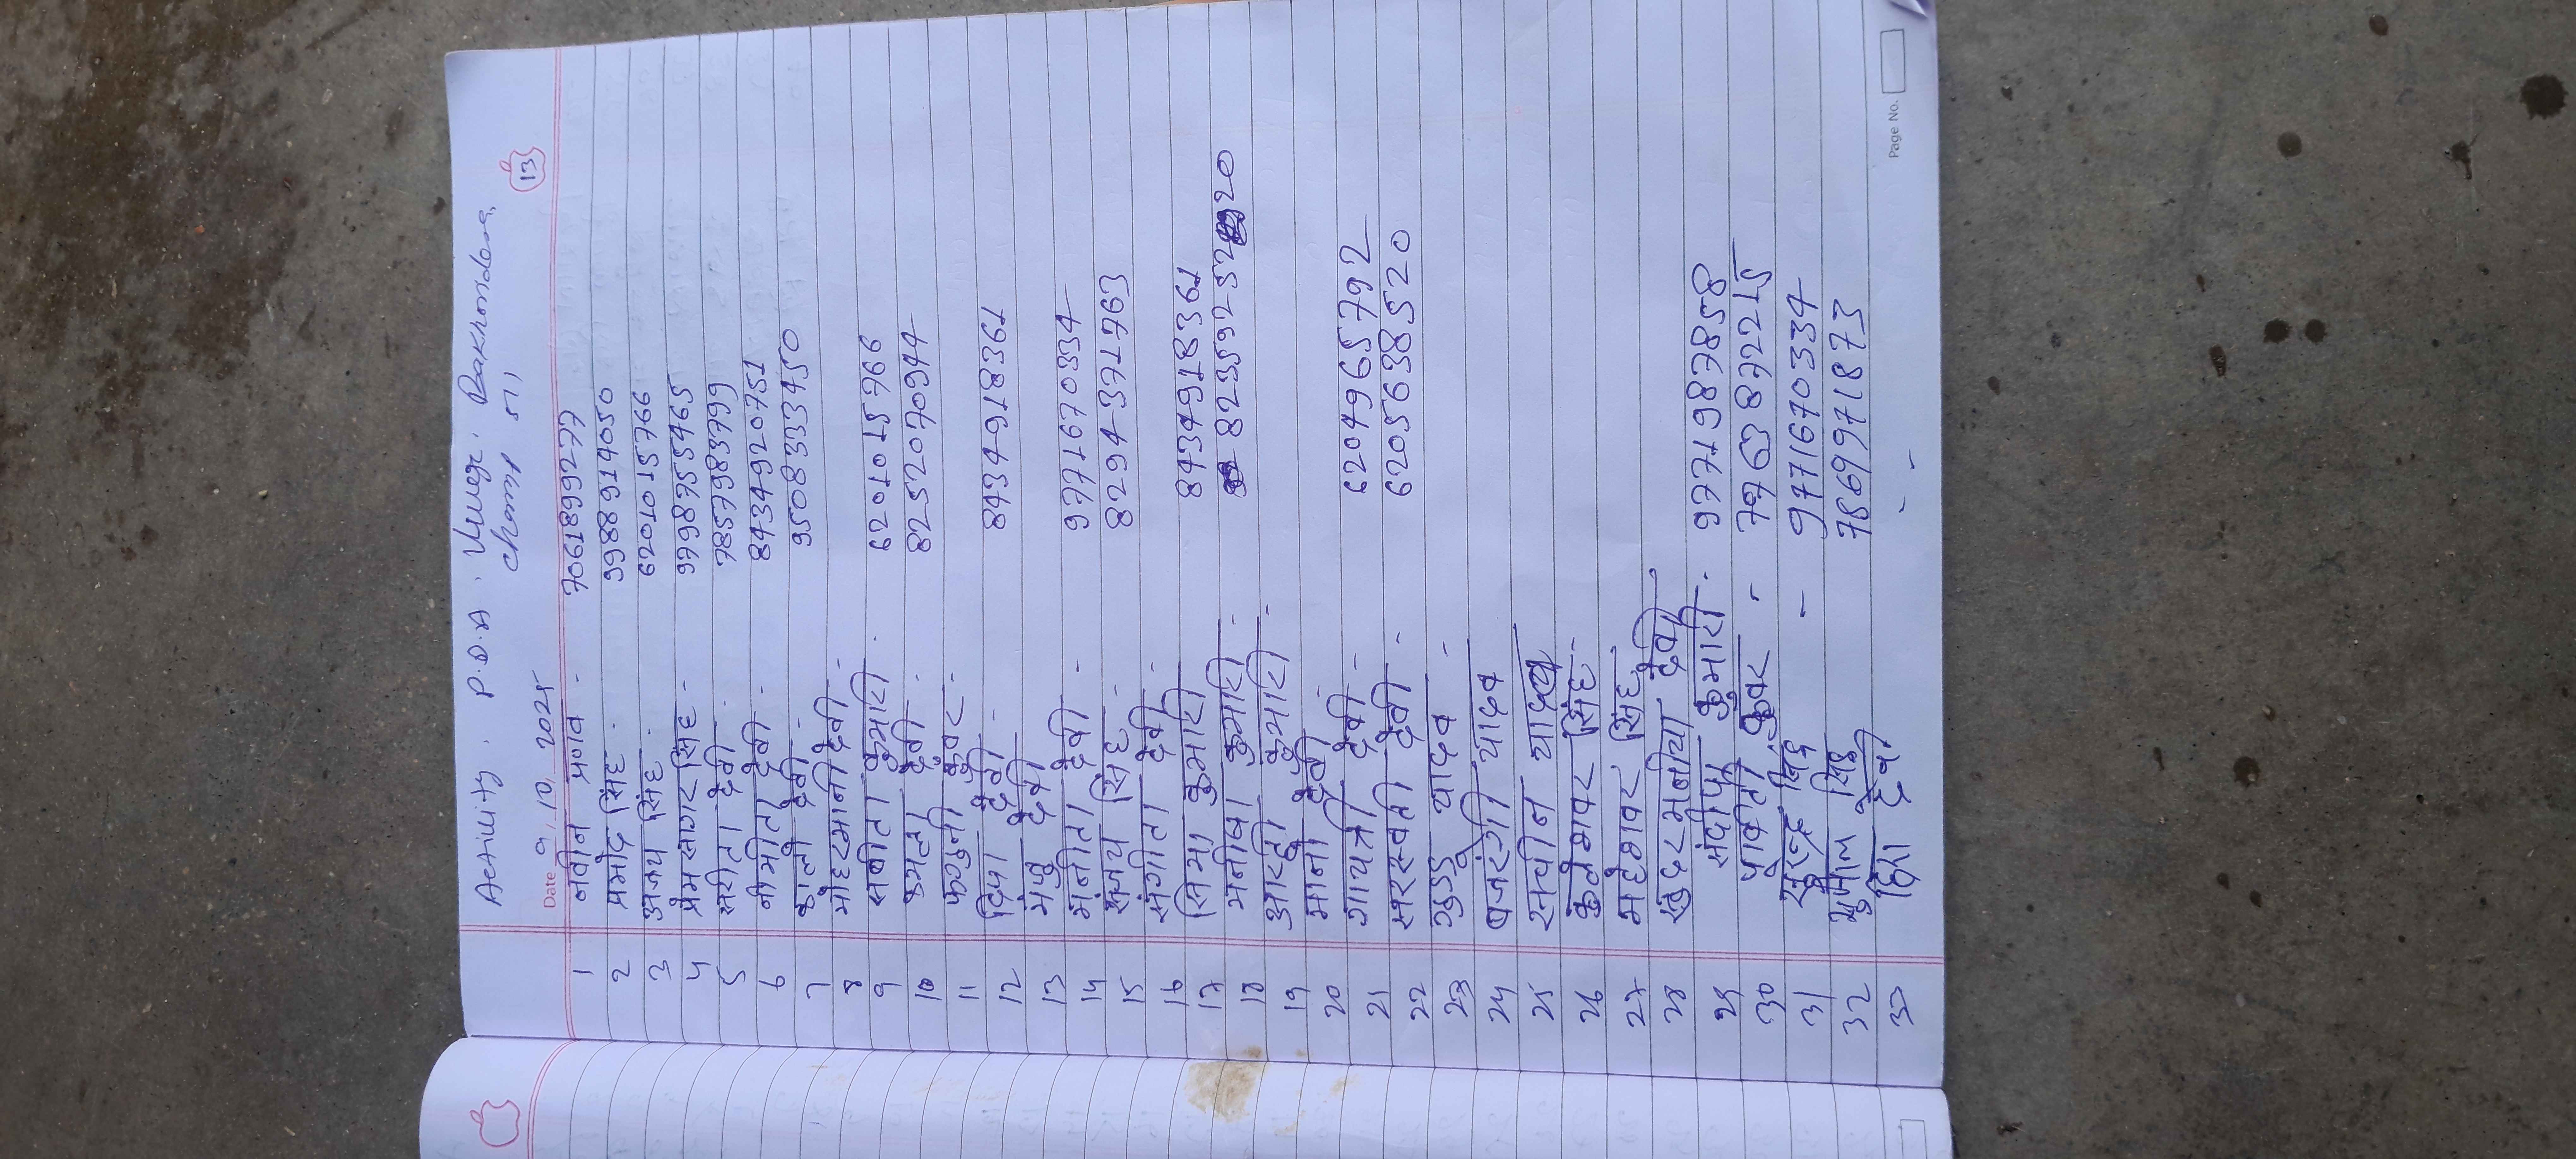 Activity. P.D.A. Village. Dakhondera
Champ 51,
Date 9.10.2025
13
1 नवीन प्रणव - 7061899277
2 प्रमोद सिंह - 9988914050
3 अजय सिंह - 6201015766
4 प्रेम सागर सिंह - 9798755465
5 सरीता देवी - 7857983799
6 नीमीता देवी - 8434920751
7 कान्ती देवी - 9508333450
8 देवी -
9 सबीता कुमारी - 6201015766
10 कमला देवी - 8252070944
11 फगुनी कुवर -
12 दिपा देवी - 8434918361
13 मंजु देवी
14 मंनीता देवी - 9771670334
15 संजय सिंह - 8294371763
16 संगीता देवी -
17 सिमा कुमारी 8434918361
18 मनीषा कुमारी - 8235925220
19 आरती कुमारी -
20 मानो देवी -
21 गायत्री देवी - 6204965792
22 सरस्वती देवी - 6205638520
23 गुड्डू यादव -
24 बजरंगी यादव
25 सचीन यादव
26 कमलेशवर सिंह -
27 महेशवर सिंह
28 सुंदरमनीया देवी
29 संदीपा कुमारी - 9771987858
30 पार्वती कुवर - 7763872215
31 सुरेन्द्र सिंह - 9771670334
32 सिंह 7869971873
33 देवी - -
Page No.